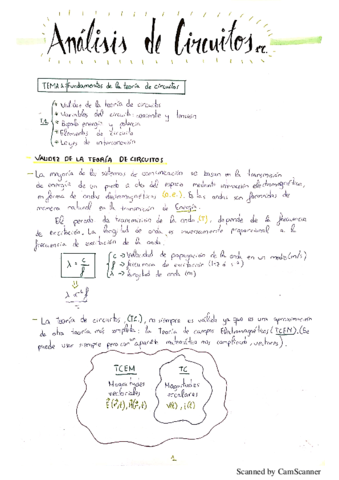 Análisis de Circuitos
TEMA 1: Fundamentos de la teoría de circuitos
Validez de la teoría de circuitos
Variables del circuito: corriente y tensión
energía y potencia
Elementos de circuito
Leyes de
VALIDEZ DE LA TEORÍA DE CIRCUITOS
- La mayoría de los sistemas de comunicación se basan en la transmisión
de energía de un punto a otro del espacio mediante
en forma de ondas electromagnéticas (O.E.). Es las ondas son formadas de
manera natural la transmisión de Energía.
El periodo de transmisión de la onda (T), depende de la frecuencia
de excitación. La longitud de onda, es inversamente proporcional a la
frecuencia de excitación de la onda.
λ = c/f
c → Velocidad de propagación de la onda en un medio (m/s)
f → frecuencia de excitación
λ → longitud de onda (m)
- La teoría de circuitos, (TC), no siempre es válida ya que es una aproximación
de otra teoría más amplia: la Teoría de campos Electromagnéticos (TCEM). (Se
puede usar siempre pero con aparato matemático más complicado, vectores).
TCEM
Magnitudes
vectoriales
TC
Magnitudes
escalares
v(t), i(t)
1
Scanned by CamScanner